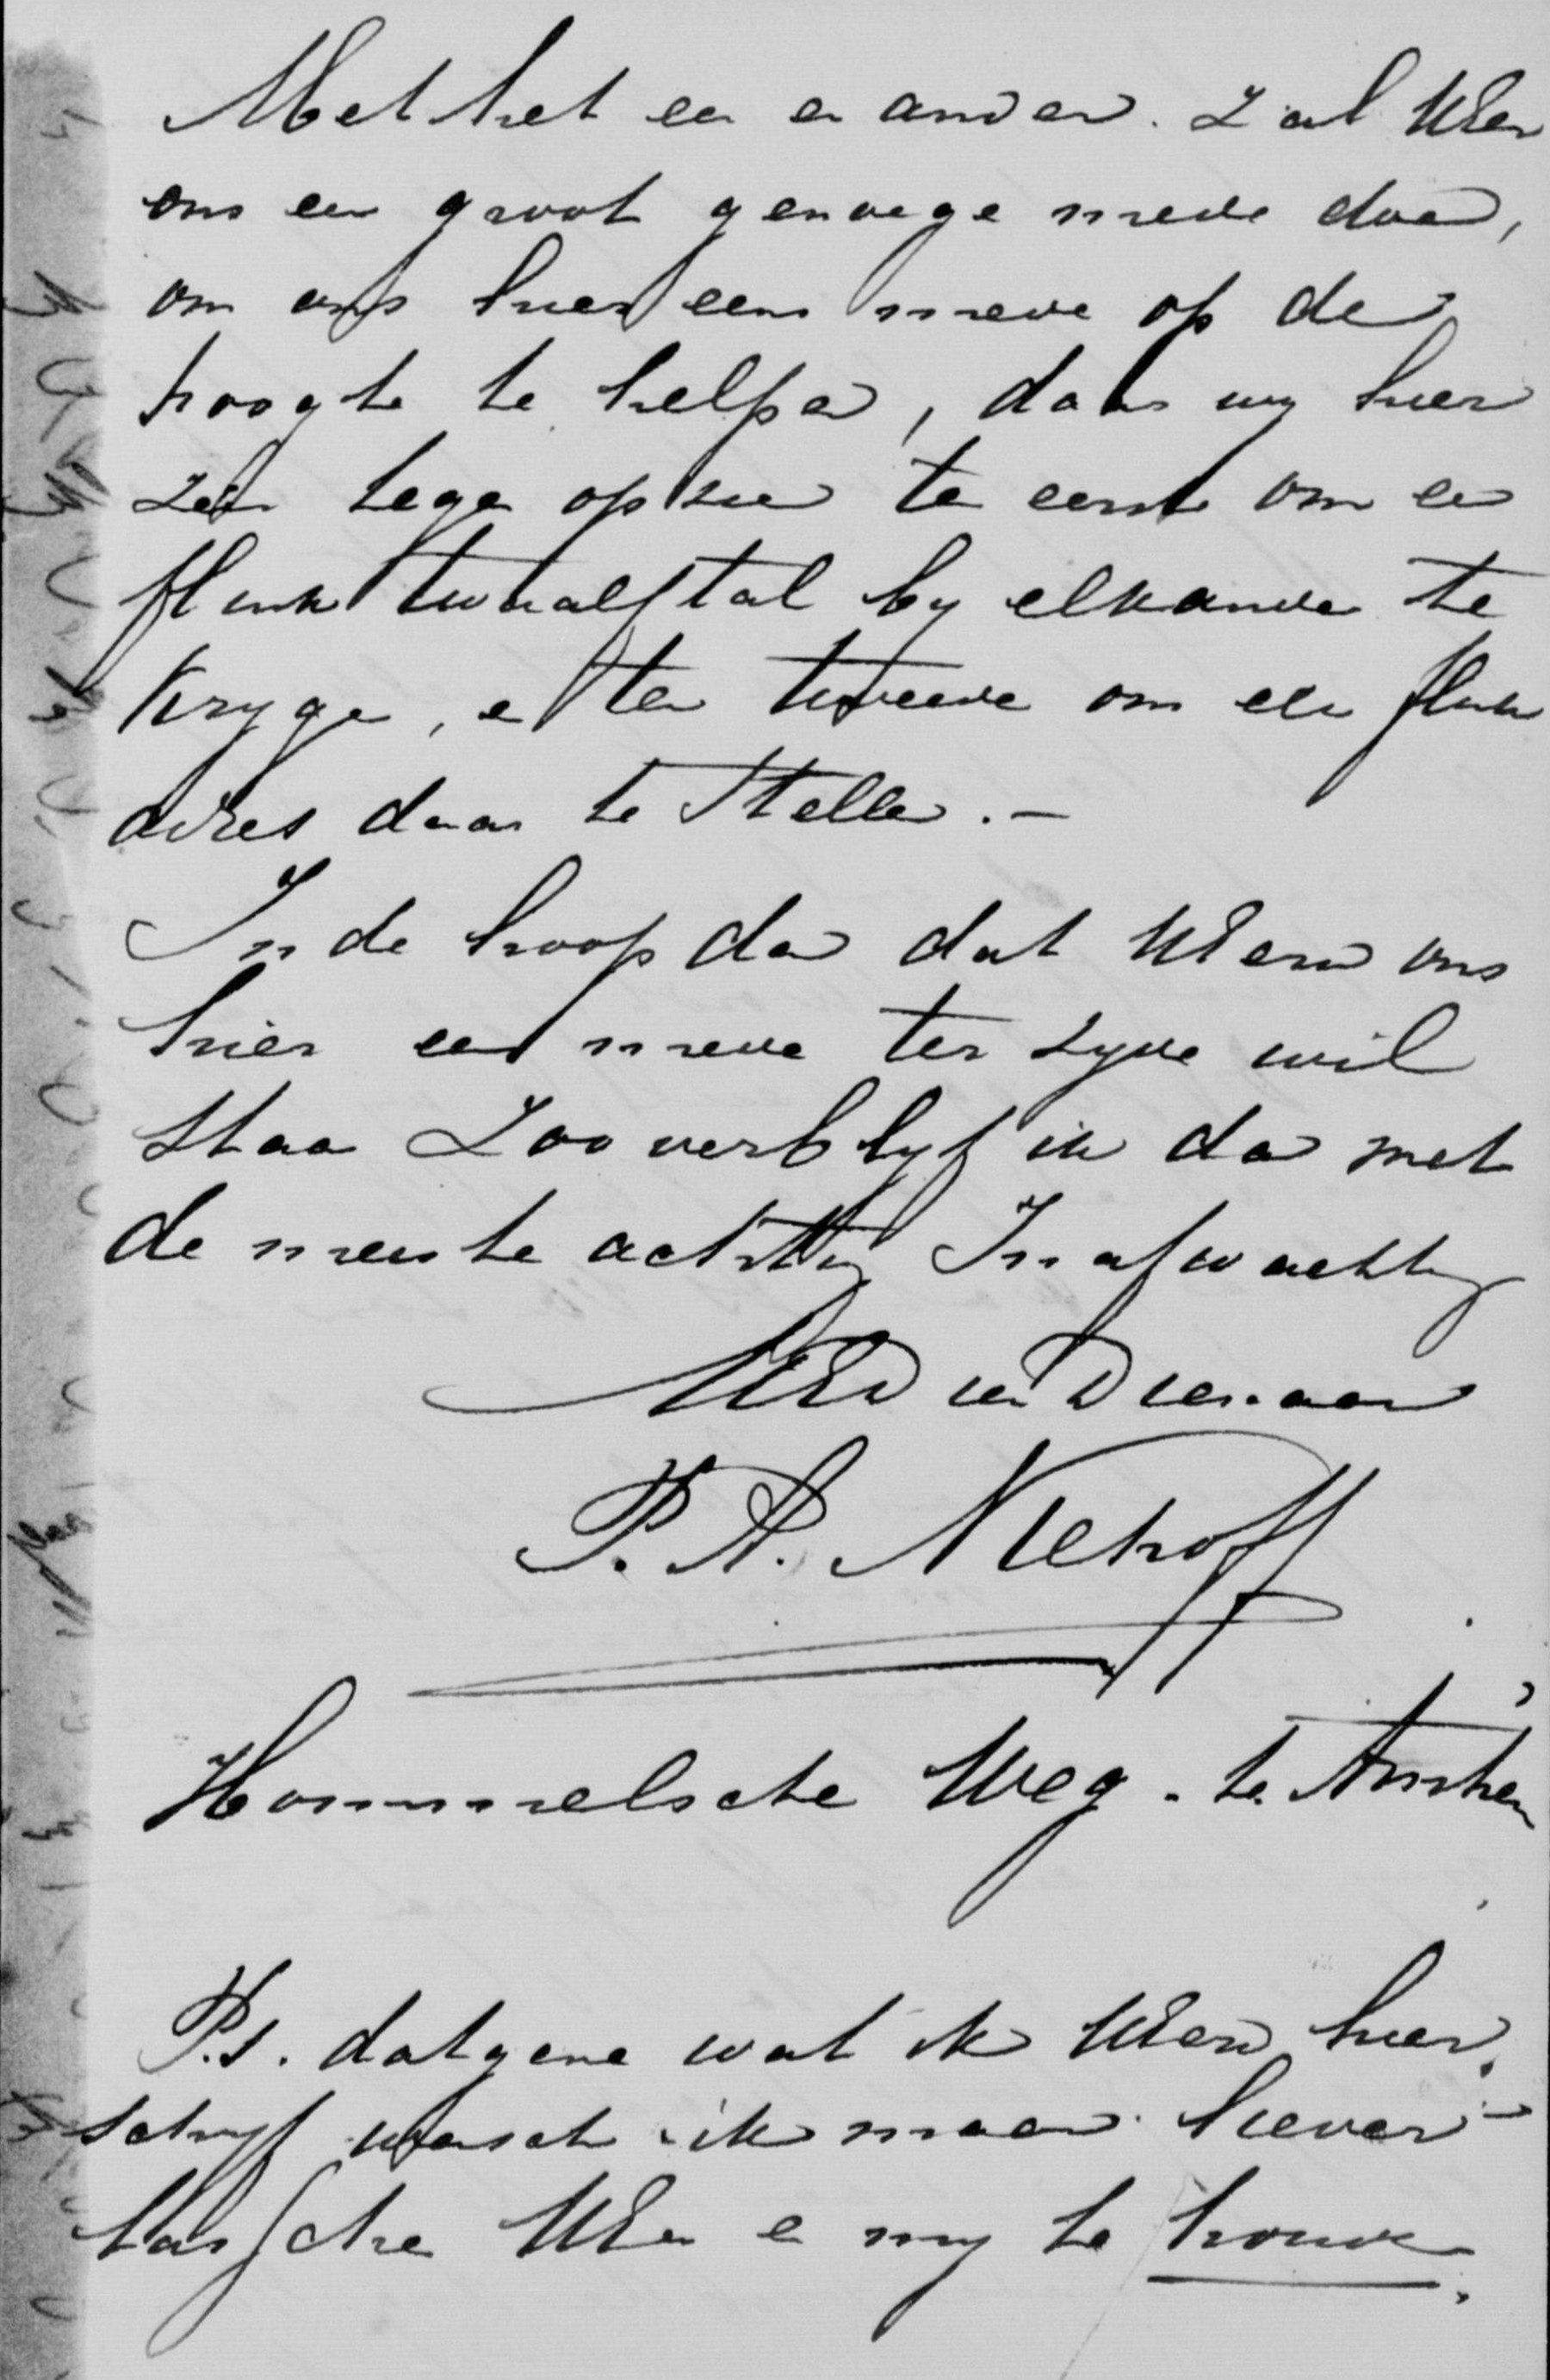 Met het een en ander. zal UEer
ons een groot genoege mede doen,
om ons hier eens mede op de
hoogte te helpen, daar wy hier
zeer tegen opzien ten eerste om een
flink twaalftal by elkander te
krygen, en ten tweede om een flink
adres daar te Stellen. –
In de hoop dan dat UEern ons
hier een mede ter zyde wil
staan Zoo verblyf ik dan met
de meeste achtting In afwachting
UEd Dienaar
P. A. Niehoff
Hommelsche Weg. te Arnhem
P.S. datgene wat ik UEern hier
schryf wensch ik maar liever
tusschen UEer en my te houden.